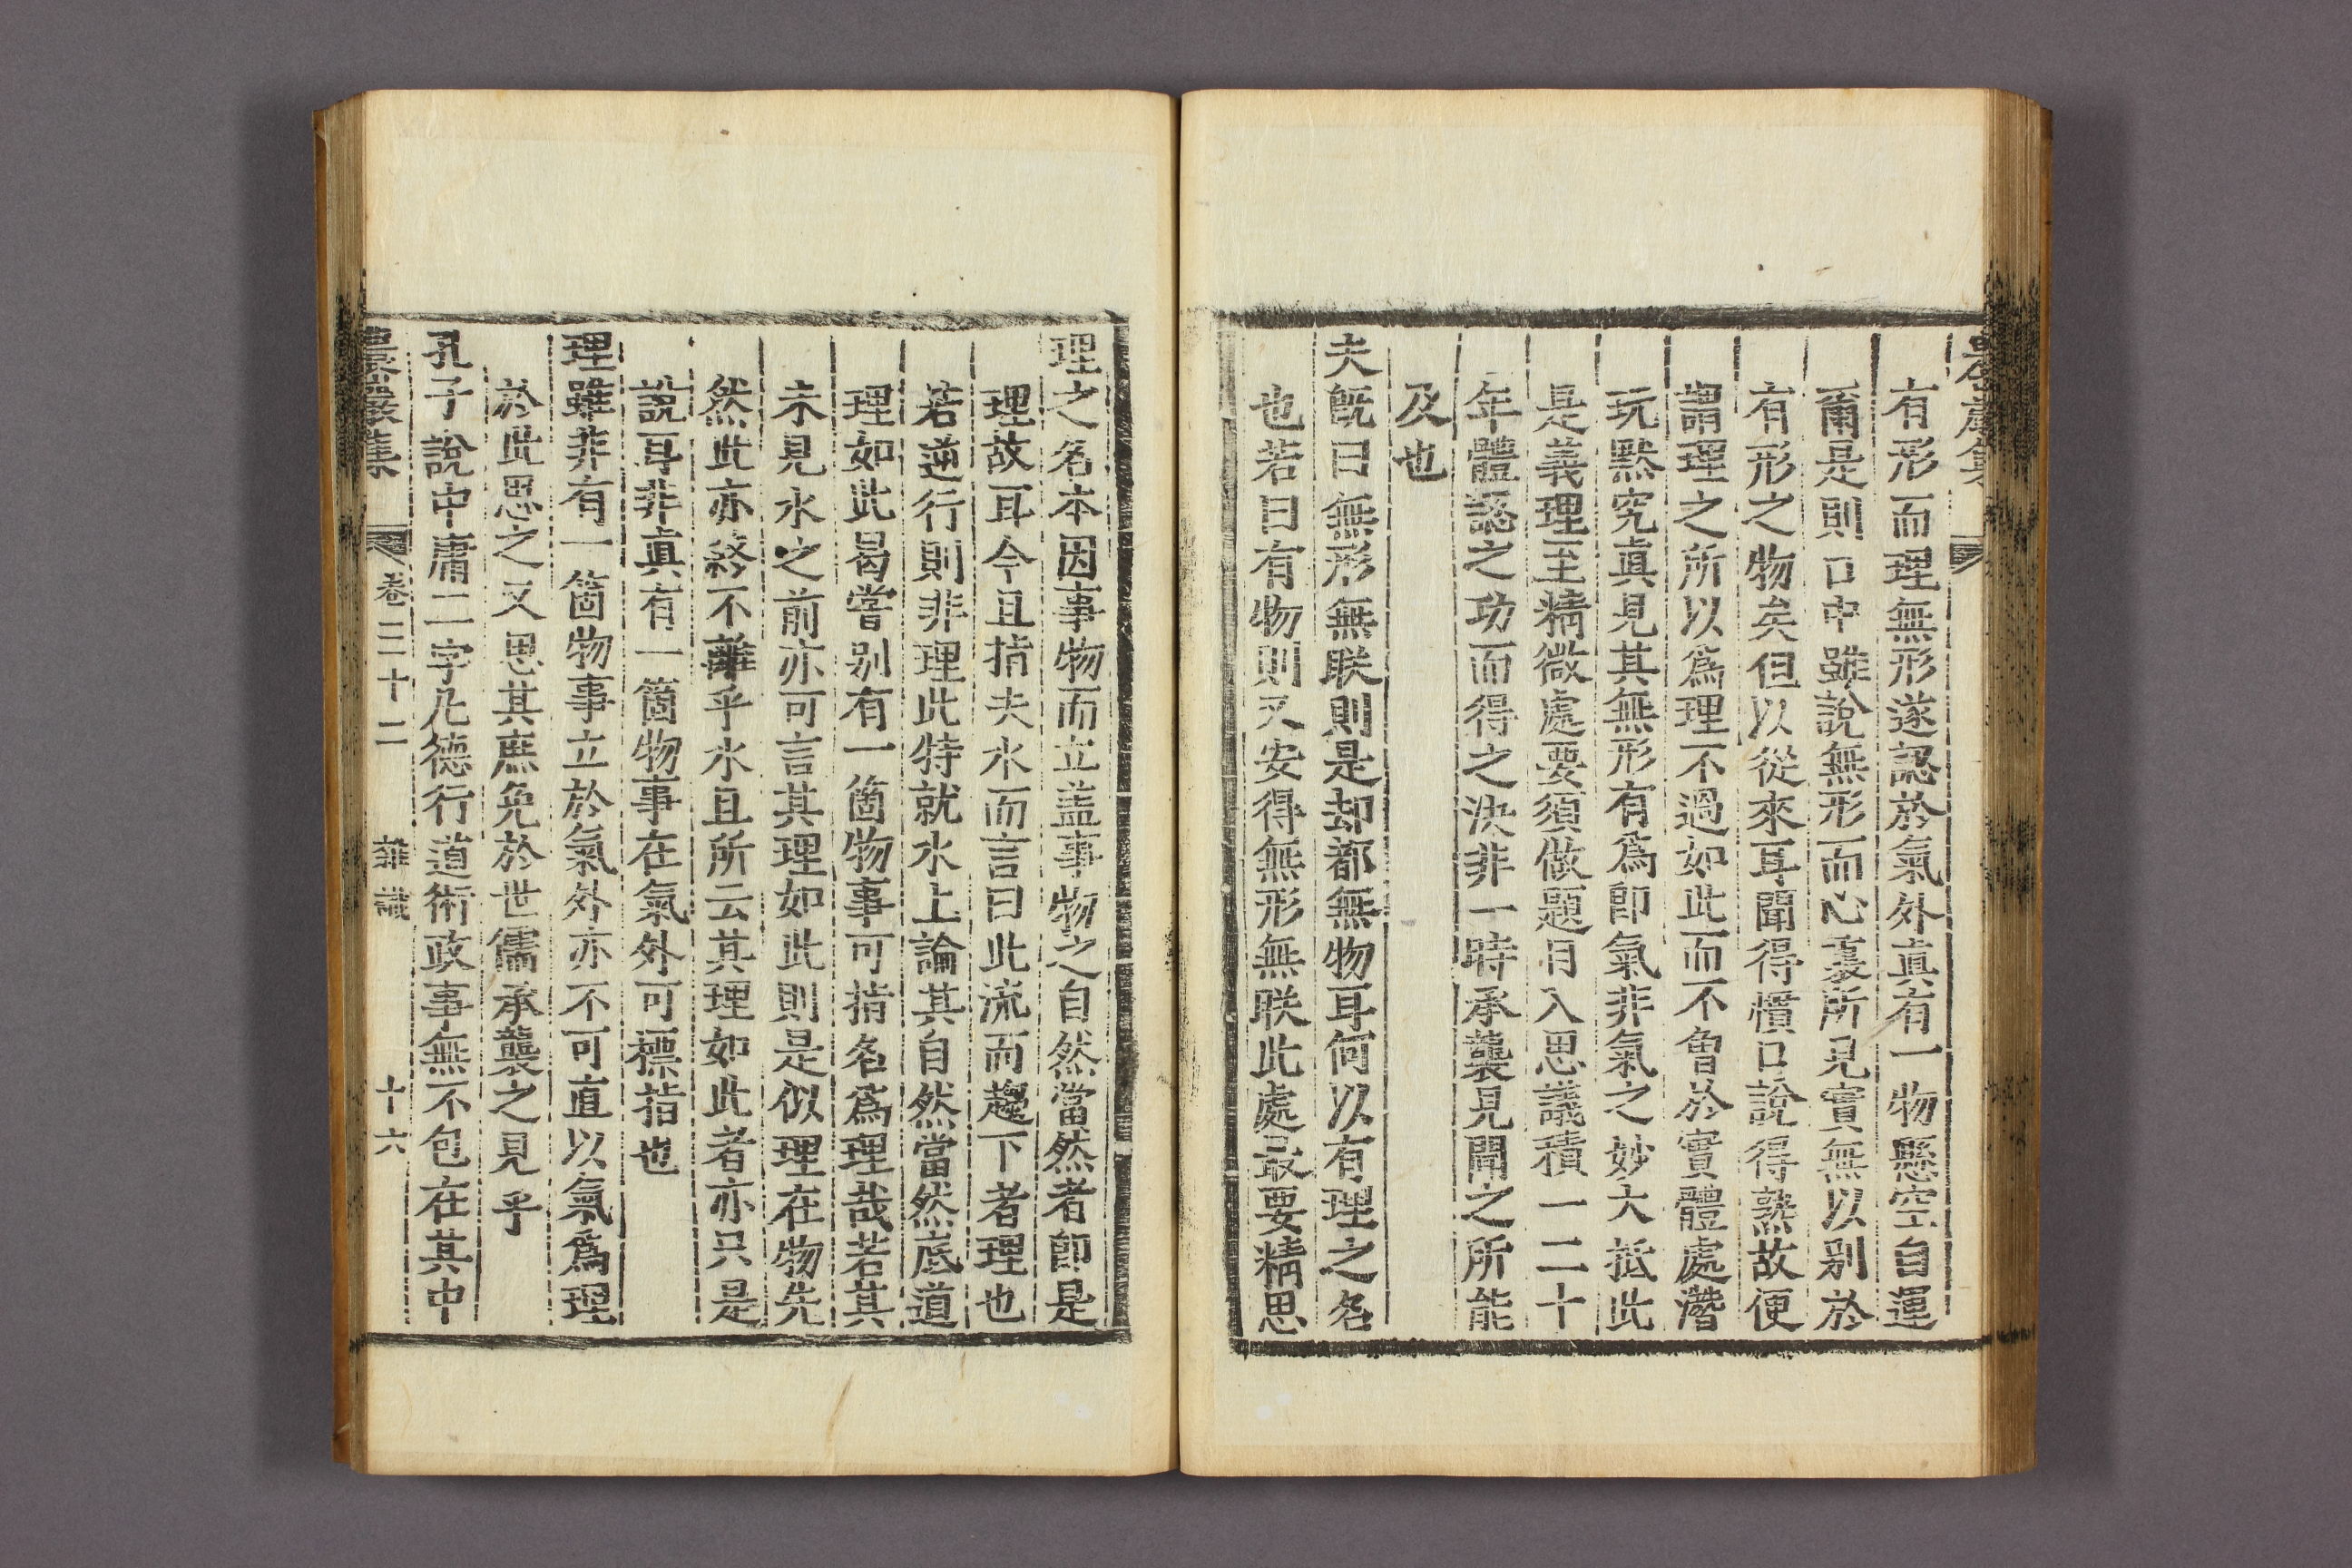 有形而理無形遂認於氣外真有一物懸空自運
爾是則口中雖說無形而心裏所見實無以別於
有形之物矣但以從來耳聞得慣口說得熟故便
謂理之所以爲理不過如此而不曾於實體處潛
玩黙究眞見其無形有爲卽氣非氣之妙大抵此
是義理至精微處要須做題目入思議積一二十
年體認之功而得之決非一時承襲見聞之所能
及也
夫旣曰無形無眹則是却都無物耳何以有理之名
也若曰有物則又安得無形無眹此處最要精思
理之名本因事物而立盖事物之自然當然者卽是
理故耳今且指夫水而言曰此流而趨下者理也
若逆行則非理此特就水上論其自然當然底道
理如此曷嘗別有一箇物事可指名爲理哉若其
未見水之前亦可言其理如此則是似理在物先
然此亦終不離乎水且所云其理如此者亦只是
說耳非眞有一箇物事在氣外可標指也
理雖非有一箇物事立於氣外亦不可直以氣爲理
於此思之又思其庶免於世儒承襲之見乎
孔子說中庸二字凡德行道術政事無不包在其中
農巖集 卷三十二 雜識 十六